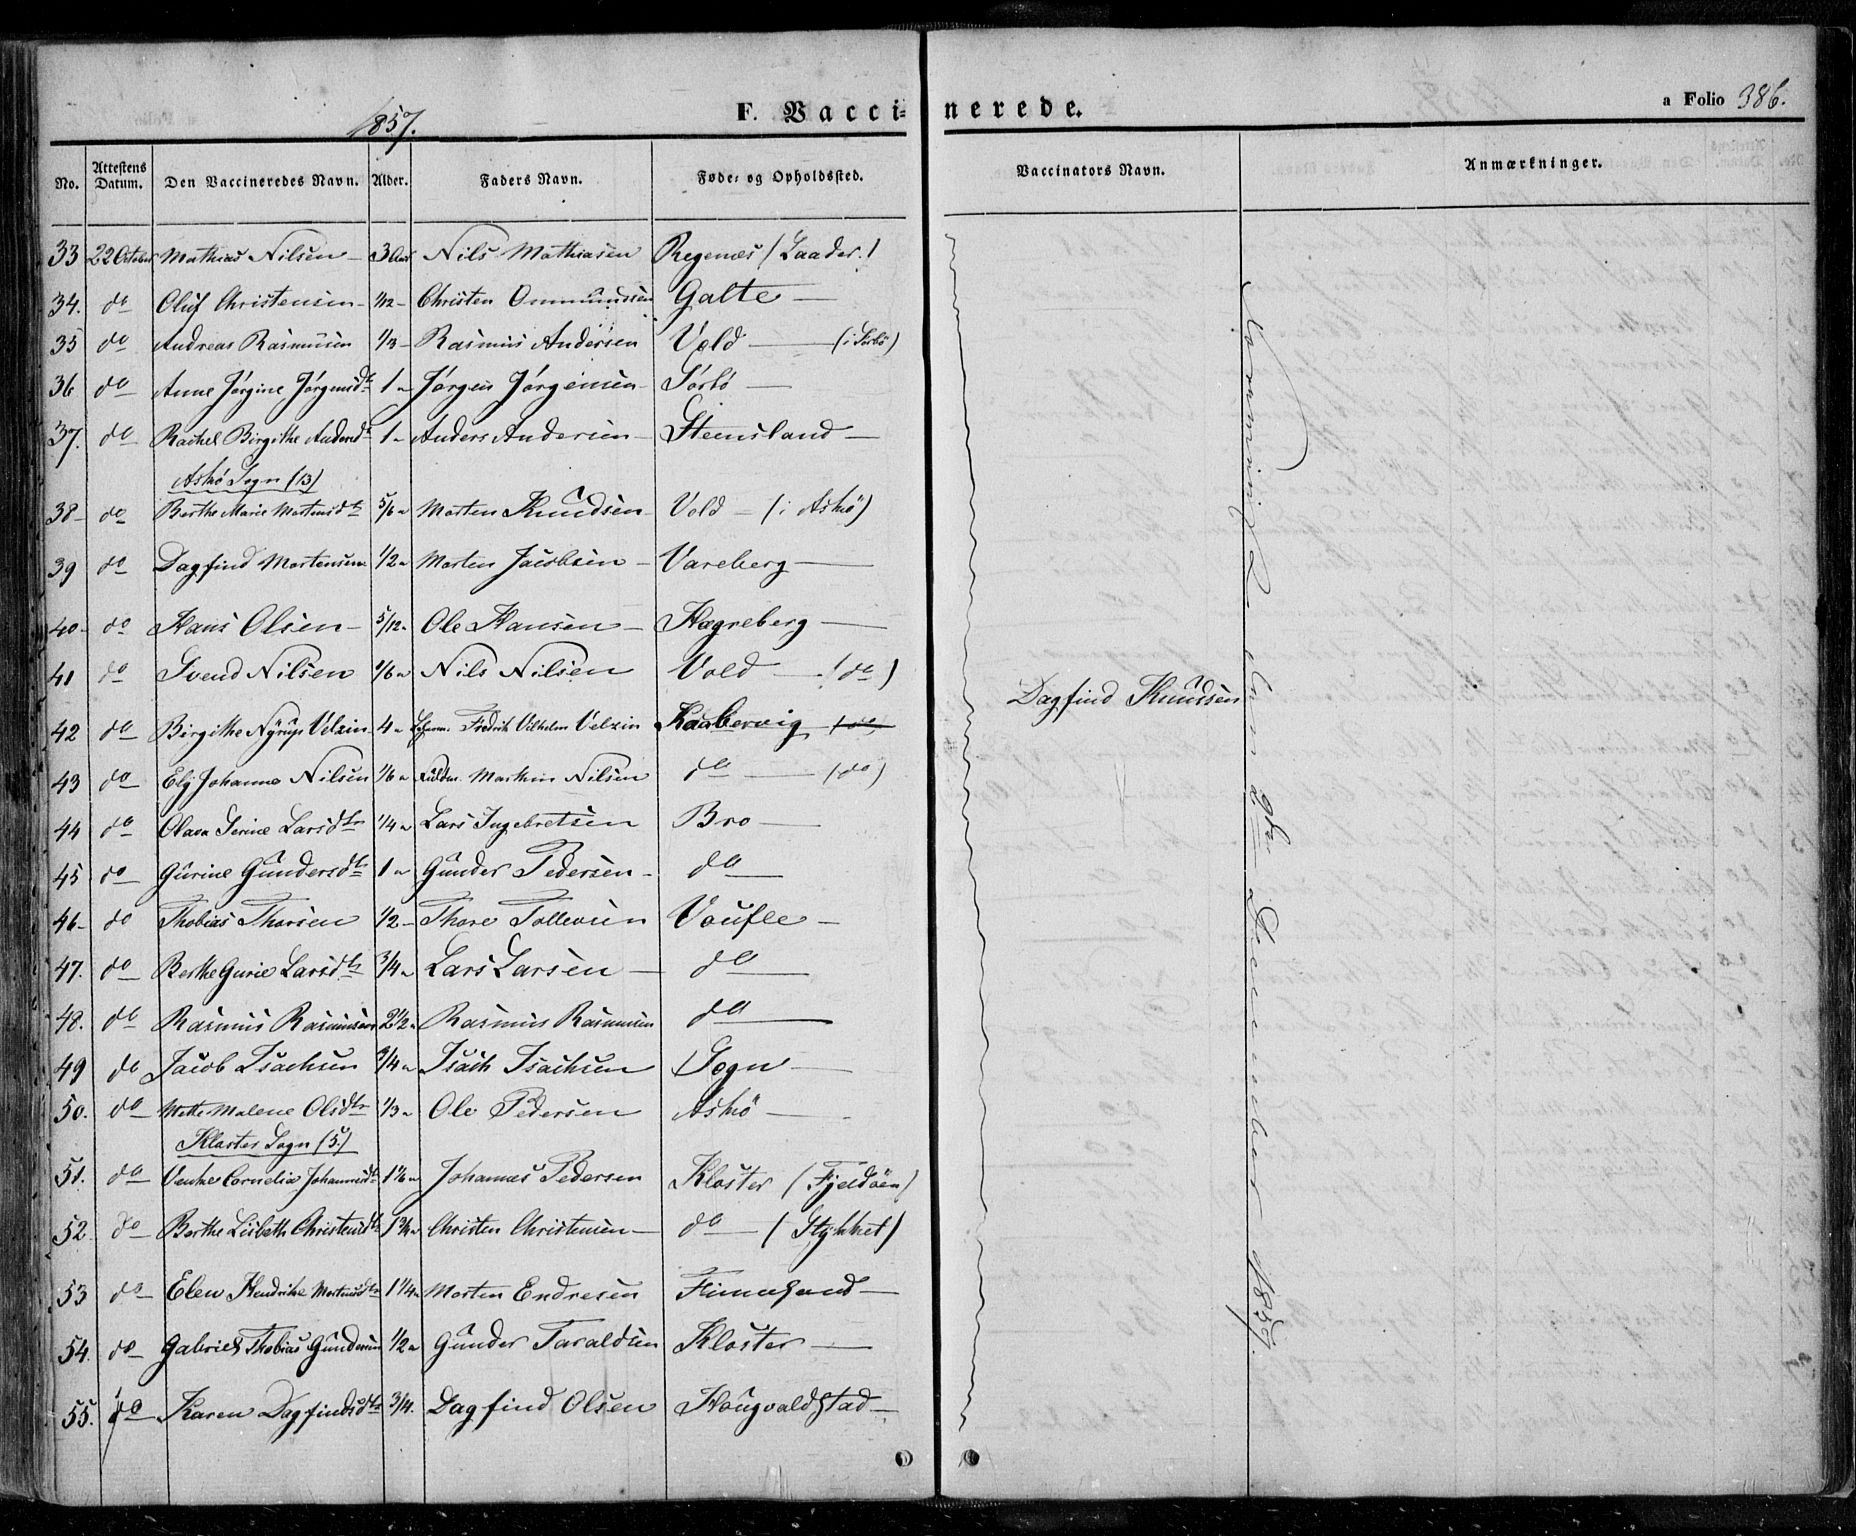 1857.
F. Vaccinerede.
a Folio 386.
No. Attestens Datum. Den Vaccineredes Navn. Alder. Faders Navn. Føde- og Opholdssted. Vaccinators Navn. Anmærkninger.
33 22 October Mathias Nilsen 3 Aar Nils Mathiasen Regenæs (Laader.)
34. do Oluf Christensen 1/12 Christen Ommundsen Galte
35 do Andreas Rasmusen 1/3 Rasmus Andersen Vold (i Sørbø)
36 do Anne Jørgine Jørgensdtr 1 " Jørgen Jørgensen Sørbø
37. do Rachel Birgithe Andersdtr 1 " Anders Andersen Steensland
Askø Sogn (13)
38 do Berthe Marie Mortensdtr 5/6 " Morten Knudsen Vold (i Askø)
39 do Dagfind Mortensen 1/2 " Morten Jacobsen Vareberg
40 do Hans Olsen 5/12 " Ole Hansen Hægreberg
41 do Svend Nilsen 1/6 " Nils Nilsen Vold (do)
42 do Birgithe Nyrup Velzin 4 " Fredrik Vilhelm Velzin Kaabervig (do)
43 do Elj Johanne Nilsen 1/6 " Markus Nilsen do (do)
44 do Olava Serine Larsdtr 1/4 " Lars Ingebretsen Bro
45 do Gurine Gundersdtr 1 " Gunder Pedersen do
46 do Thobias Thorsen 1/2 Thore Tollevsen Voufle
47. do Berthe Gurie Larsdtr 3/4 " Lars Larsen do
48. do Rasmus Rasmusen 2 1/2 " Rasmus Rasmusen do
49 do Jacob Isachsen 3/4 " Isach Isachsen Sogn
50. do Mette Malene Olsdtr 1/3 " Ole Pedersen Askø
Kloster Sogn (5.)
51. do Venke Cornelia Johannesdtr 1 1/6 " Johannes Pedersen Kloster (Fjeldøen)
52 do Berthe Lisbeth Christensdtr 1 3/4 " Christen Christensen do (Stykket)
53 do Elen Hendrikke Mortensdtr 1 1/4 " Morten Endresen Finnesand
54. do Gabriel Thobias Gundersen 1/2 " Gunder Taraldsen Kloster
55. do Karen Dagfindsdtr 3/4. Dagfind Olsen Hougvaldstad
Dagfind Knudsen
9de December 1857.